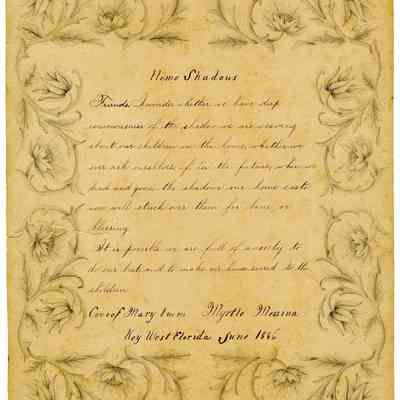 Home Shadows
Friends I wonder whether we have deep
consciousness of the shadow we are weaving
about our children in the home, whether we
ever ask ourselves if in the future, when we
dead and gone, the shadow our home casts
now will stretch over them for bane or
blessing
It is possible we are full of anxiety to
do our best, and to make our home sacred to the
children
Cove of Mary Imm Myrtle Messina
Key West Florida June 1886